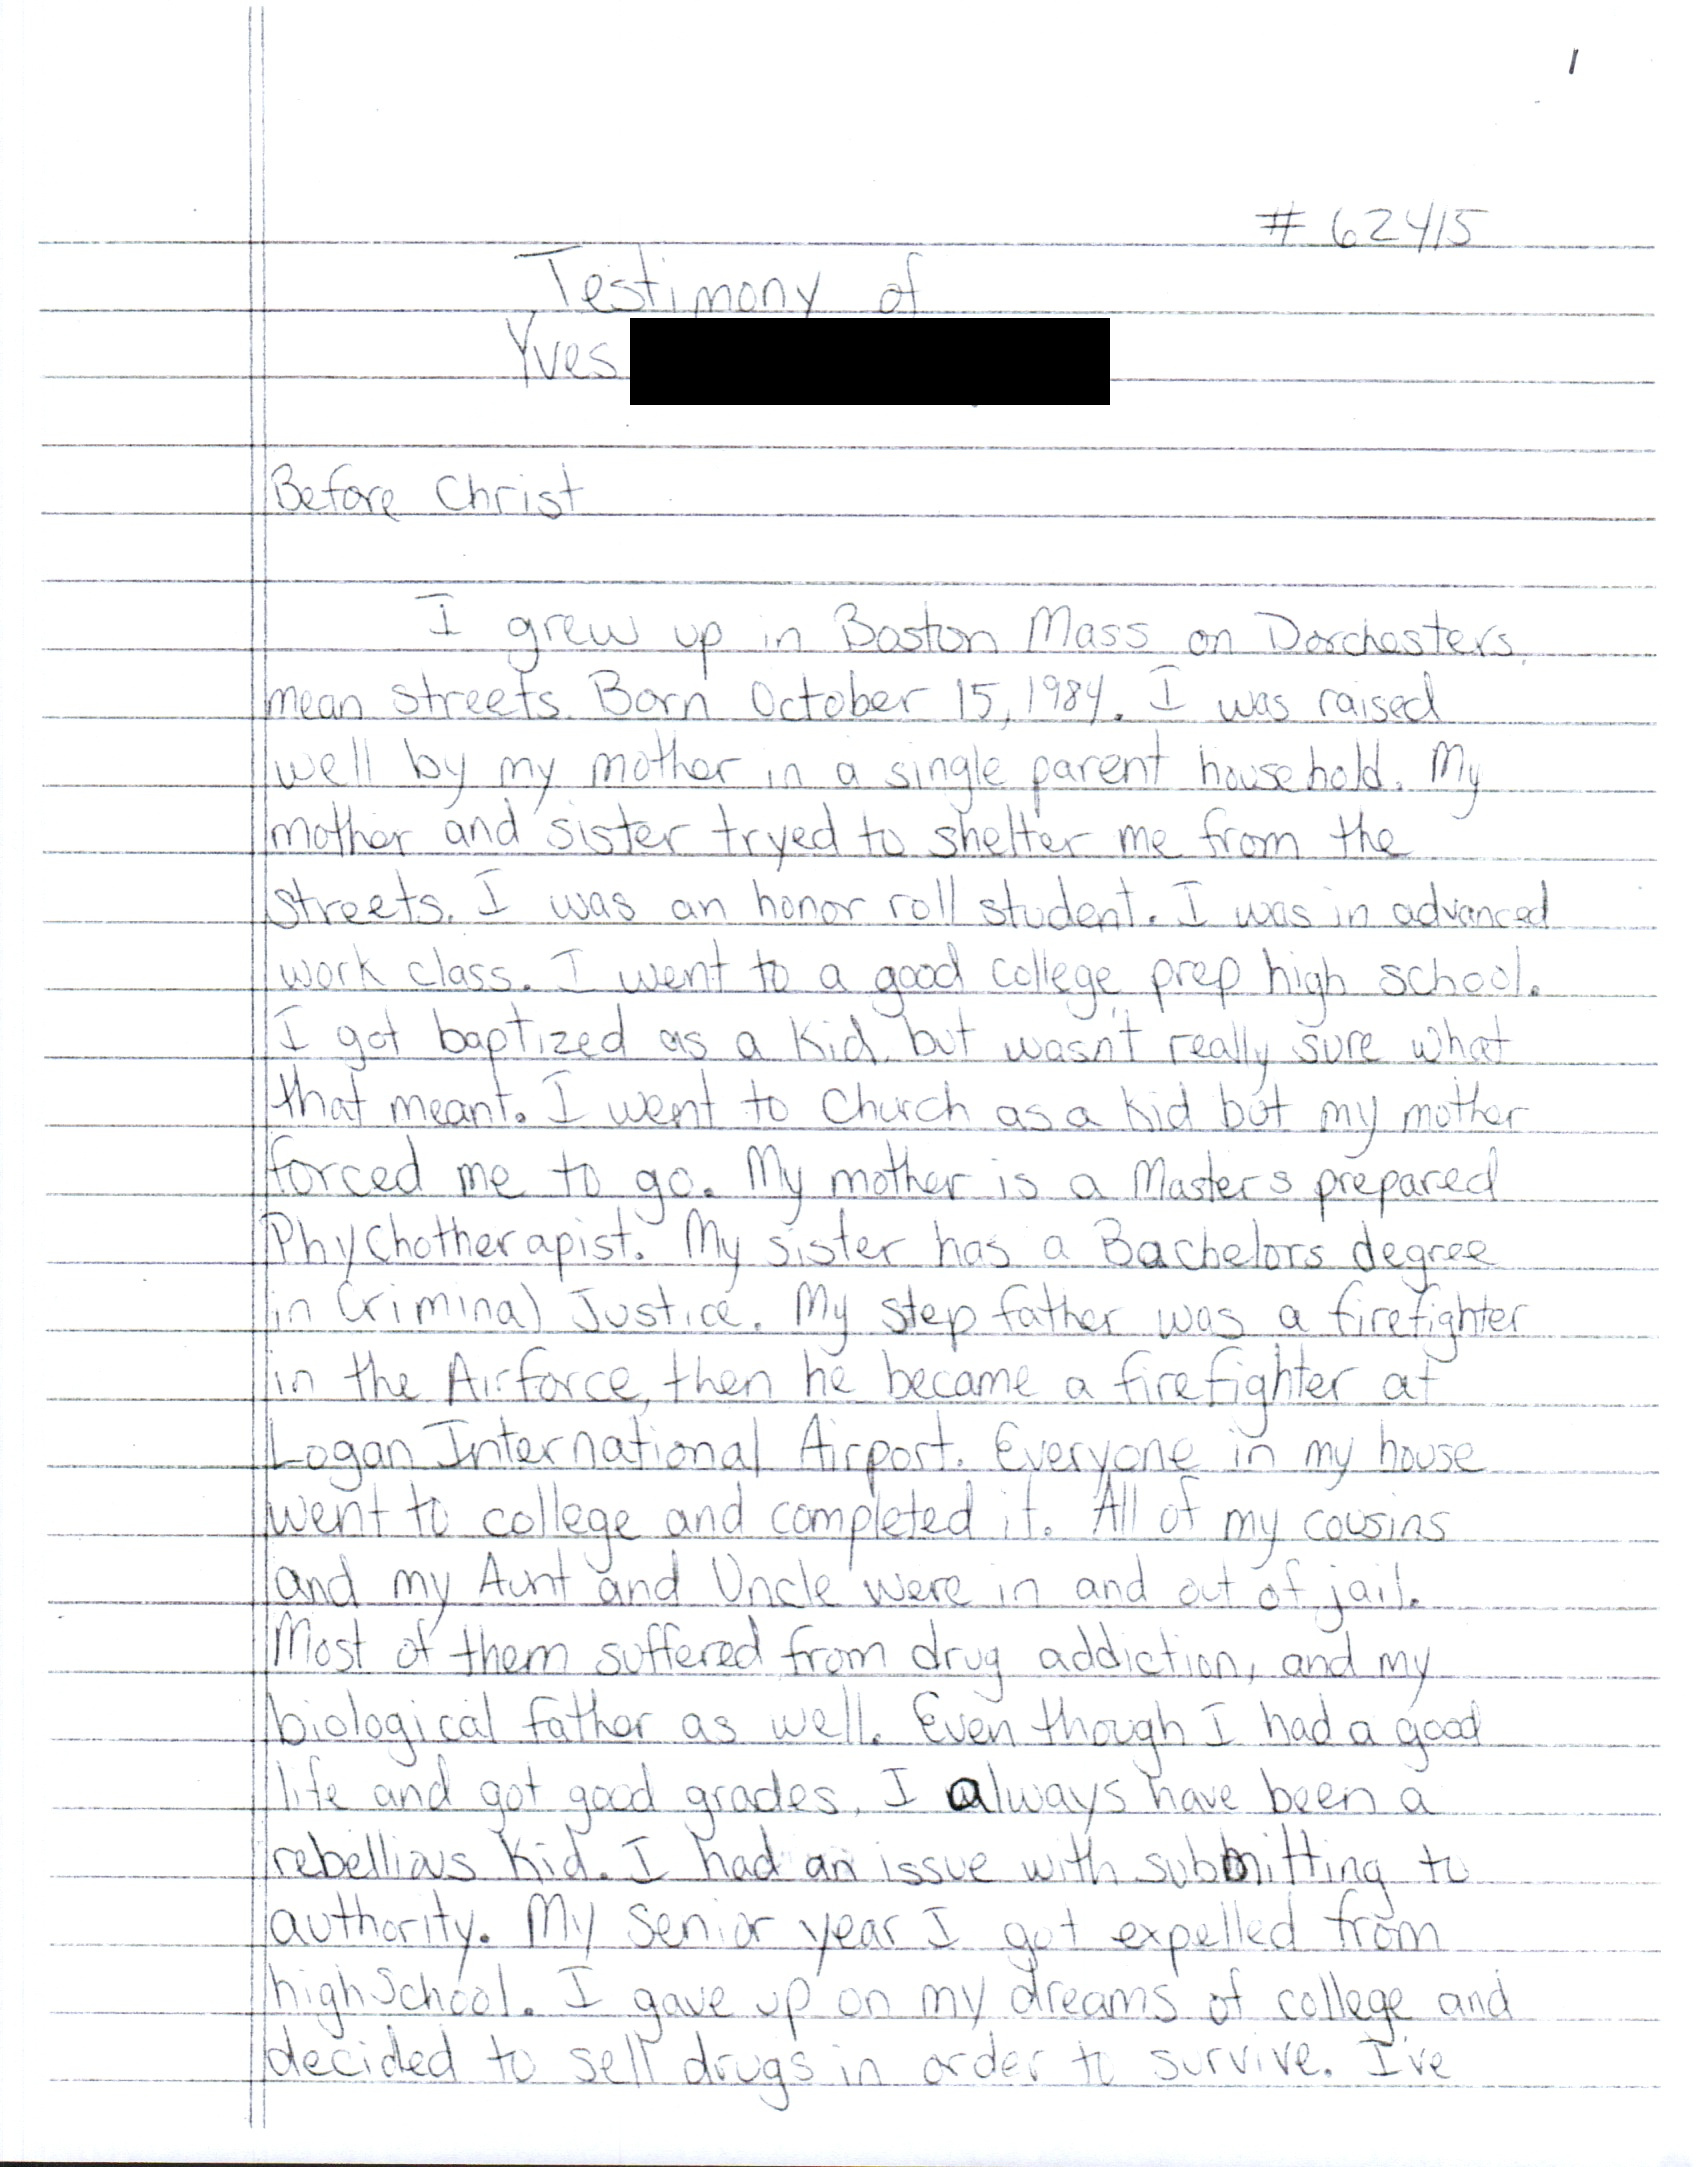 1
# 62415
Testimony of
Yves
Before Christ
I grew up in Boston Mass on Dorchesters
mean streets. Born October 15, 1984. I was raised
well by my mother in a single parent household. My
mother and sister tryed to shelter me from the
streets. I was an honor roll student. I was in advanced
work class. I went to a good college prep high school.
I got baptized as a kid but wasn't really sure what
that meant. I went to Church as a kid but my mother
forced me to go. My mother is a Masters prepared
Phychotherapist. My sister has a Bachelors degree
in Criminal Justice. My step father was a firefighter
in the Airforce, then he became a firefighter at
Logan International Airport. Everyone in my house
went to college and completed it. All of my cousins
and my Aunt and Uncle were in and out of jail.
Most of them suffered from drug addiction, and my
biological father as well. Even though I had a good
life and got good grades, I always have been a
rebellious kid. I had an issue with submitting to
authority. My senior year I got expelled from
highschool. I gave up on my dreams of college and
decided to sell drugs in order to survive. I've